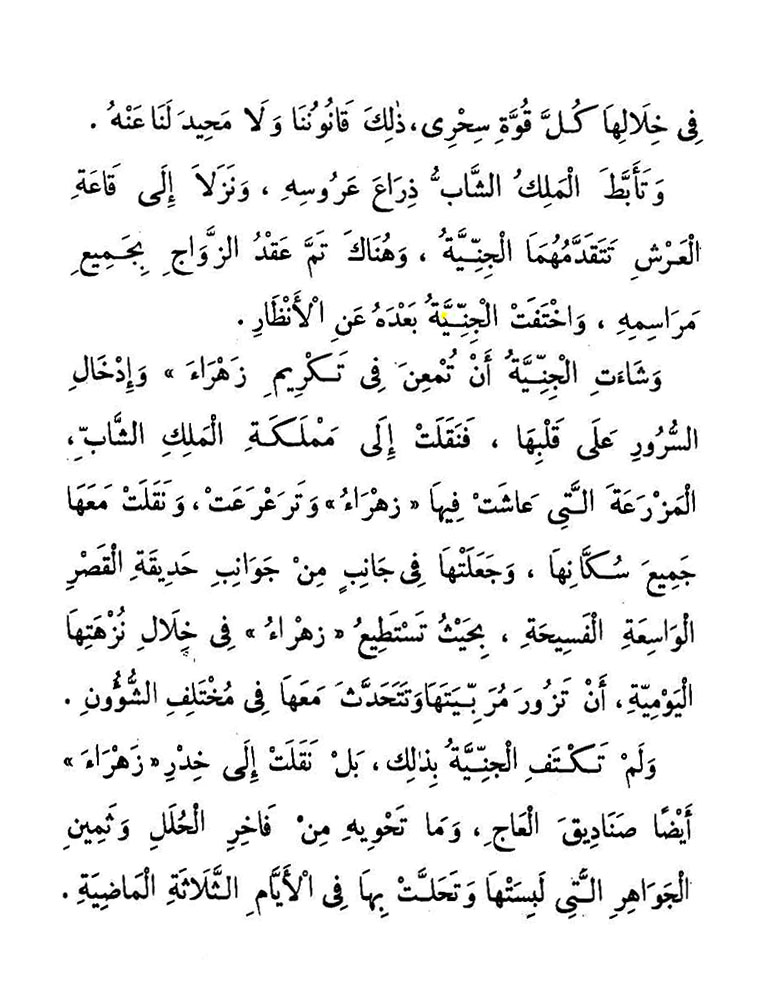 فِى خِلَالِهَا كُلَّ قُوَّةِ سِحْرِى، ذٰلِكَ قَانُونُنَا وَلَا مَحِيدَ لَنَا عَنْهُ .
وَتَأَبَّطَ الْمَلِكُ الشَّابُّ ذِرَاعَ عَرُوسِهِ ، وَنَزَلاَ إِلَى قَاعَةِ
الْعَرْشِ تَتَقَدَّمُهُمَا الْجِنِّيَّةُ ، وَهُنَاكَ تَمَّ عَقْدُ الزَّوَاجِ بِجَمِيعِ
مَرَاسِمِهِ ، وَاخْتَفَتْ الْجِنِّيَّةُ بَعْدَهُ عَنِ الْأَنْظَارِ .
وَشَاءَتِ الْجِنِّيَّةُ أَنْ تُمْعِنَ فِى تَكْرِيمِ زَهْرَاءَ » وَإِدْخَالِ
السُّرُورِ عَلَى قَلْبِهَا ، فَنَقَلَتْ إِلَى مَمْلَكَةِ الْمَلِكِ الشَّابِّ،
الْمَزْرَعَةَ الَّتِى عَاشَتْ فِيهَا « زهْرَاءُ» وَتَرَعْرَعَتْ، وَنَقَلَتْ مَعَهَا
جَمِيعَ سُكَّانِهَا ، وَجَعَلَتْهَا فِى جَانِبٍ مِنْ جَوَانِبِ حَدِيقَةِ الْقَصْرِ
الْوَاسِعَةِ الْفَسِيحَةِ ، بِحَيْثُ تَسْتَطِيعُ « زهْراءُ » فِى خِلَالِ نُزْهَتِهَا
الْيَوْمِيّةِ، أَنْ تَزُورَ مُرَبِّيَتَهَا وَتَتَحَدَّثَ مَعَهَا فِى مُخْتَلِفِ الشُّؤُونِ .
وَلَمْ تَكْتَفِ الْجِنِّيَّةُ بِذٰلِك، بَلْ نَقَلَتْ إِلَى خِدْرِ «زَهْرَاءَ»
أَيْضًا صَنَادِيقَ الْعَاجِ، وَمَا تَحْوِيهِ مِنْ فَاخِرِ الْحُلَلِ وَثَمِينِ
الْجَوَاهِرِ الَّتِى لَبِسَتْهَا وَتَحَلَّتْ بِهَا فِى الْأَيَّامِ الثَّلَاثَةِ الْمَاضِيَةِ .